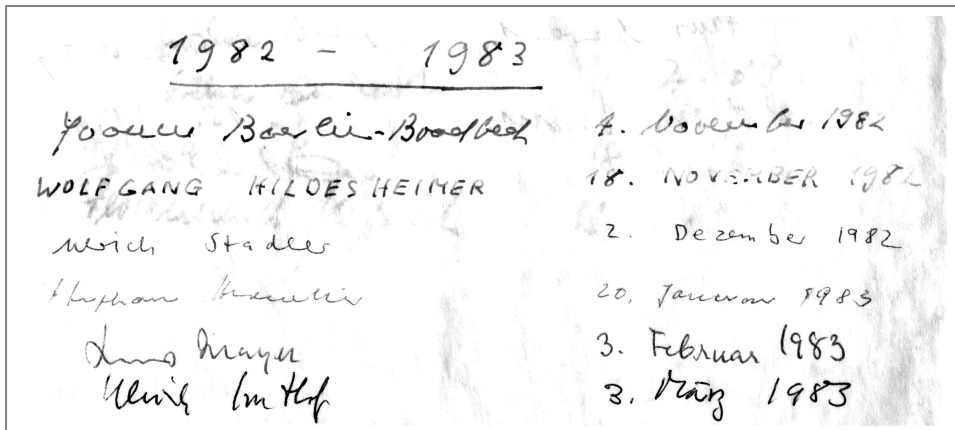 1982 - 1983
Yvonne Boerlin-Brodbeck 4. November 1982
WOLFGANG HILDESHEIMER 18. NOVEMBER 1982
Ulrich Stadler 2. Dezember 1982
Stephan 20. Januar 1983
Mayer 3. Februar 1983
Ulrich Im Hof 3. März 1983